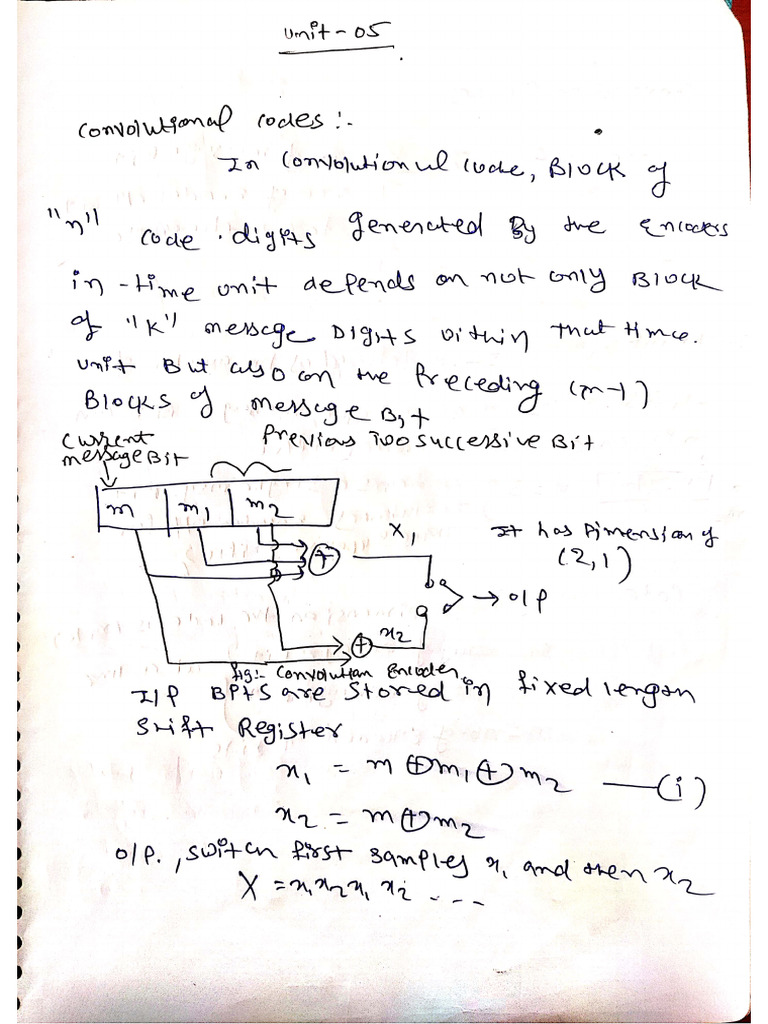 Unit-05
Convolutional codes:-
In Convolutional code, Block of
"n" code digits generated By the Encoders
in-time unit depends on not only Block
of "K" message Digits within that time.
unit But also on the Preceding (m-1)
Blocks of message Bit
Current message Bit
Previous two successive Bit
m m1 m2
x1
It has Dimension of
(2,1)
→ o/p
x2
fig:- Convolution Encoder
I/P Bits are Stored in fixed length
Shift Register
x1 = m ⊕ m1 ⊕ m2 —(i)
x2 = m ⊕ m2
O/P., switch first samples x1 and then x2
X = x1 x2 x1 x2 ---